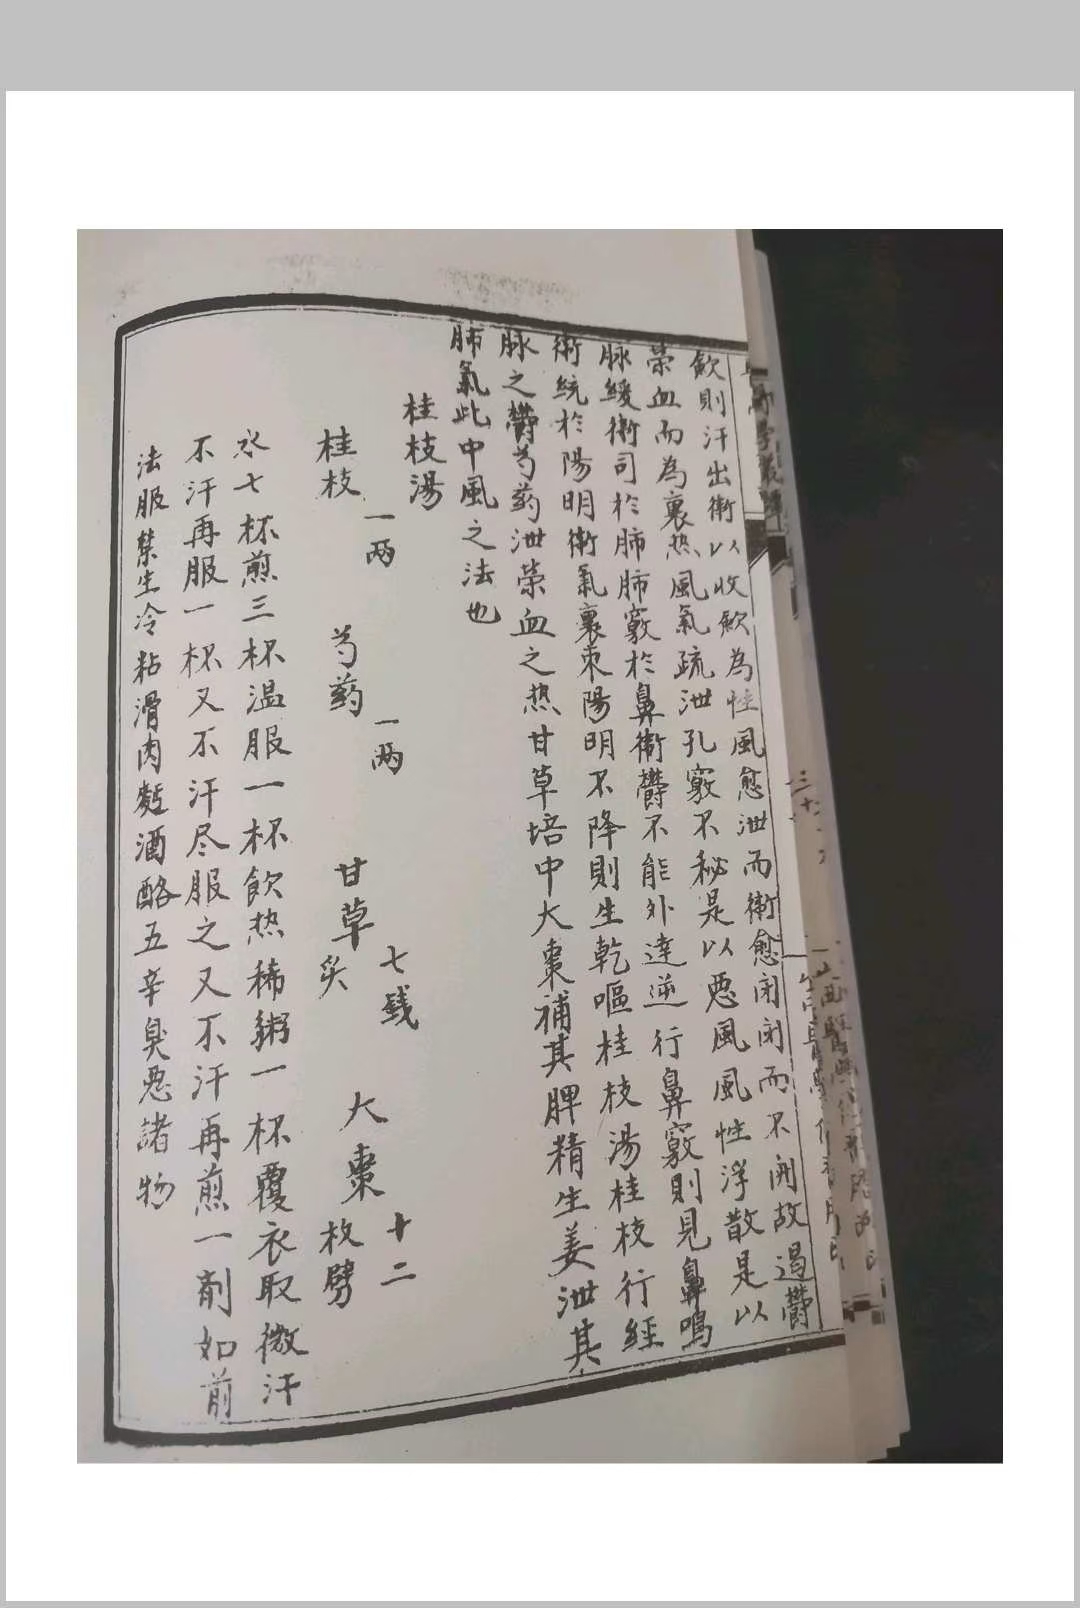 歛則汗出衛以收歛為性風愈泄而衛愈闭闭而不開故遏欎
榮血而為裏热風氣疏泄孔竅不秘是以恶風風性浮散是以
脉緩衛司於肺肺竅於鼻衛欎不能外達逆行鼻竅則見鼻鳴
衛統於陽明衛氣裏束陽明不降則生乾嘔桂枝湯桂枝行經
脉之欎芍葯泄榮血之热甘草培中大棗補其脾精生姜泄其
肺氣此中風之法也
桂枝湯
桂枝一两 芍葯一两 甘草炙七銭 大棗十二枚劈
水七杯煎三杯温服一杯飲热稀粥一杯覆衣取微汗
不汗再服一杯又不汗尽服之又不汗再煎一剤如前
法服禁生冷粘滑肉麪酒酪五辛臭恶諸物